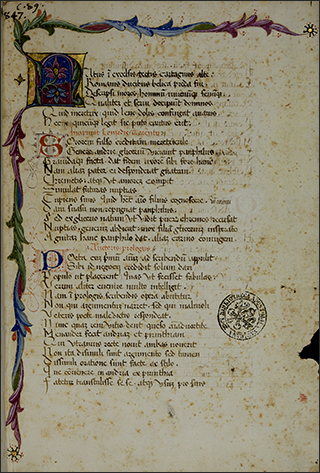 c. 89
847.
Atus i excelsis tectis cartaginis alte
Romanis ducibus belica preda fui
Descripsi mores hominu iuvenuq senuq
Qualiter et servi decipiant dominos
Quid meretrix quid leno dolis confingat avarus
Hec quicuq legit sic puto cautus erit
Sororem falso creditam meretricule
Genere andrie glicerii viciavit pamphilus
Gravidaq facta dat fidem uxore sibi fore hanc
Nam aliam pater ei desponderat gnatam
Chremetis atq ut amore comperit
Simulat futuras nuptias
Cupiens suus quid filius cognosceret
Davi suasu non repugnat pamphilus
Sed ex glicerio natum ut vidit pueru chremes recusat
Nuptias generu abdicat mox filia glicerium insperato
Agnita hanc pamphilo dat aliam carino coniugem
prologus
Poeta cum primu animu ad scribendu appulit
Sibi id negocii credidit solum dari
Populo ut placerent quas fecisset fabulas
Verum aliter evenire multo intelligit
Nam i prologis scribendis opera abutitur
Non qui argumentu narret sed qui malivoli
Veteris poete maledictis respondeat
Nunc quam rem vitio dent queso
Menander fecit andriam et perinthiam
Qui utramvis recte norit ambas noverit
Non ita dissimili sunt argumento sed tamen
Dissimili oratione sunt facte ex stilo
Que convenere in andria ex perinthia
Fatetur transtulisse se atq usum pro suis